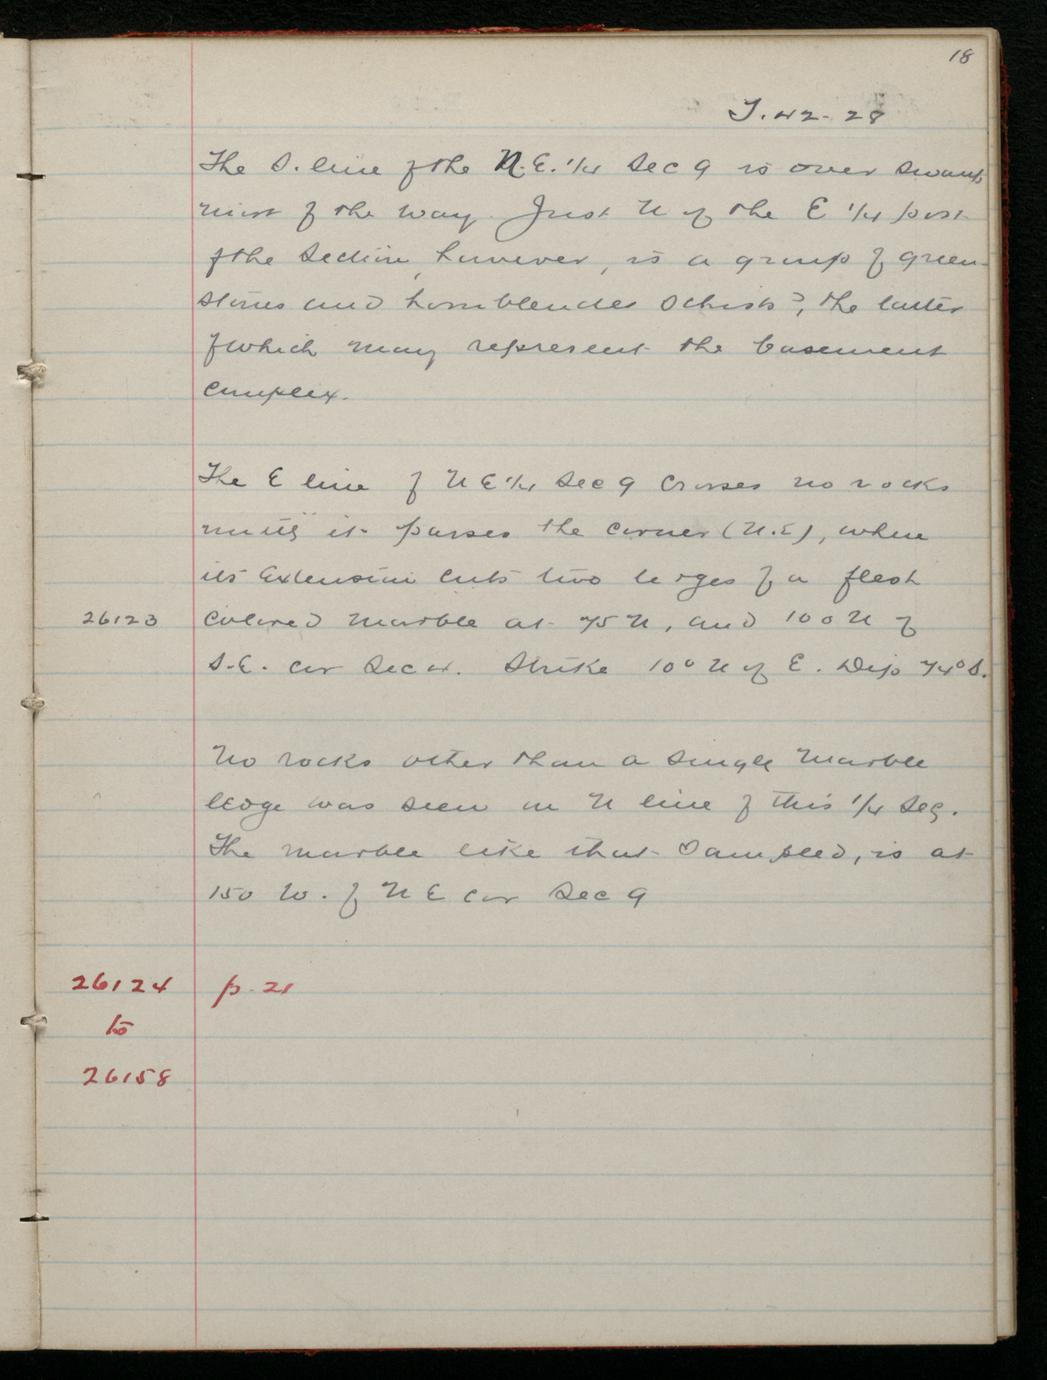 18
T. 42-28
The S. line of the N.E. 1/4 Sec 9 is over swamp
most of the way. Just N of the E 1/4 post
of the Section, however, is a group of green-
stones and hornblendes schists?, the latter
of which may represent the basement
complex.
The E line of N E 1/4 Sec 9 crosses no rocks
until it passes the corner (N.E), when
its extension cuts two ledges of a flesh
26123 colored marble at 75 N, and 100 N of
S.E. cor Sec 4. Strike 10° N of E. Dip 74° S.
No rocks other than a single marble
ledge was seen on N line of this 1/4 Sec.
The marble like that sampled, is at
150 W. of N E cor Sec 9
26124 p. 21
to
26158